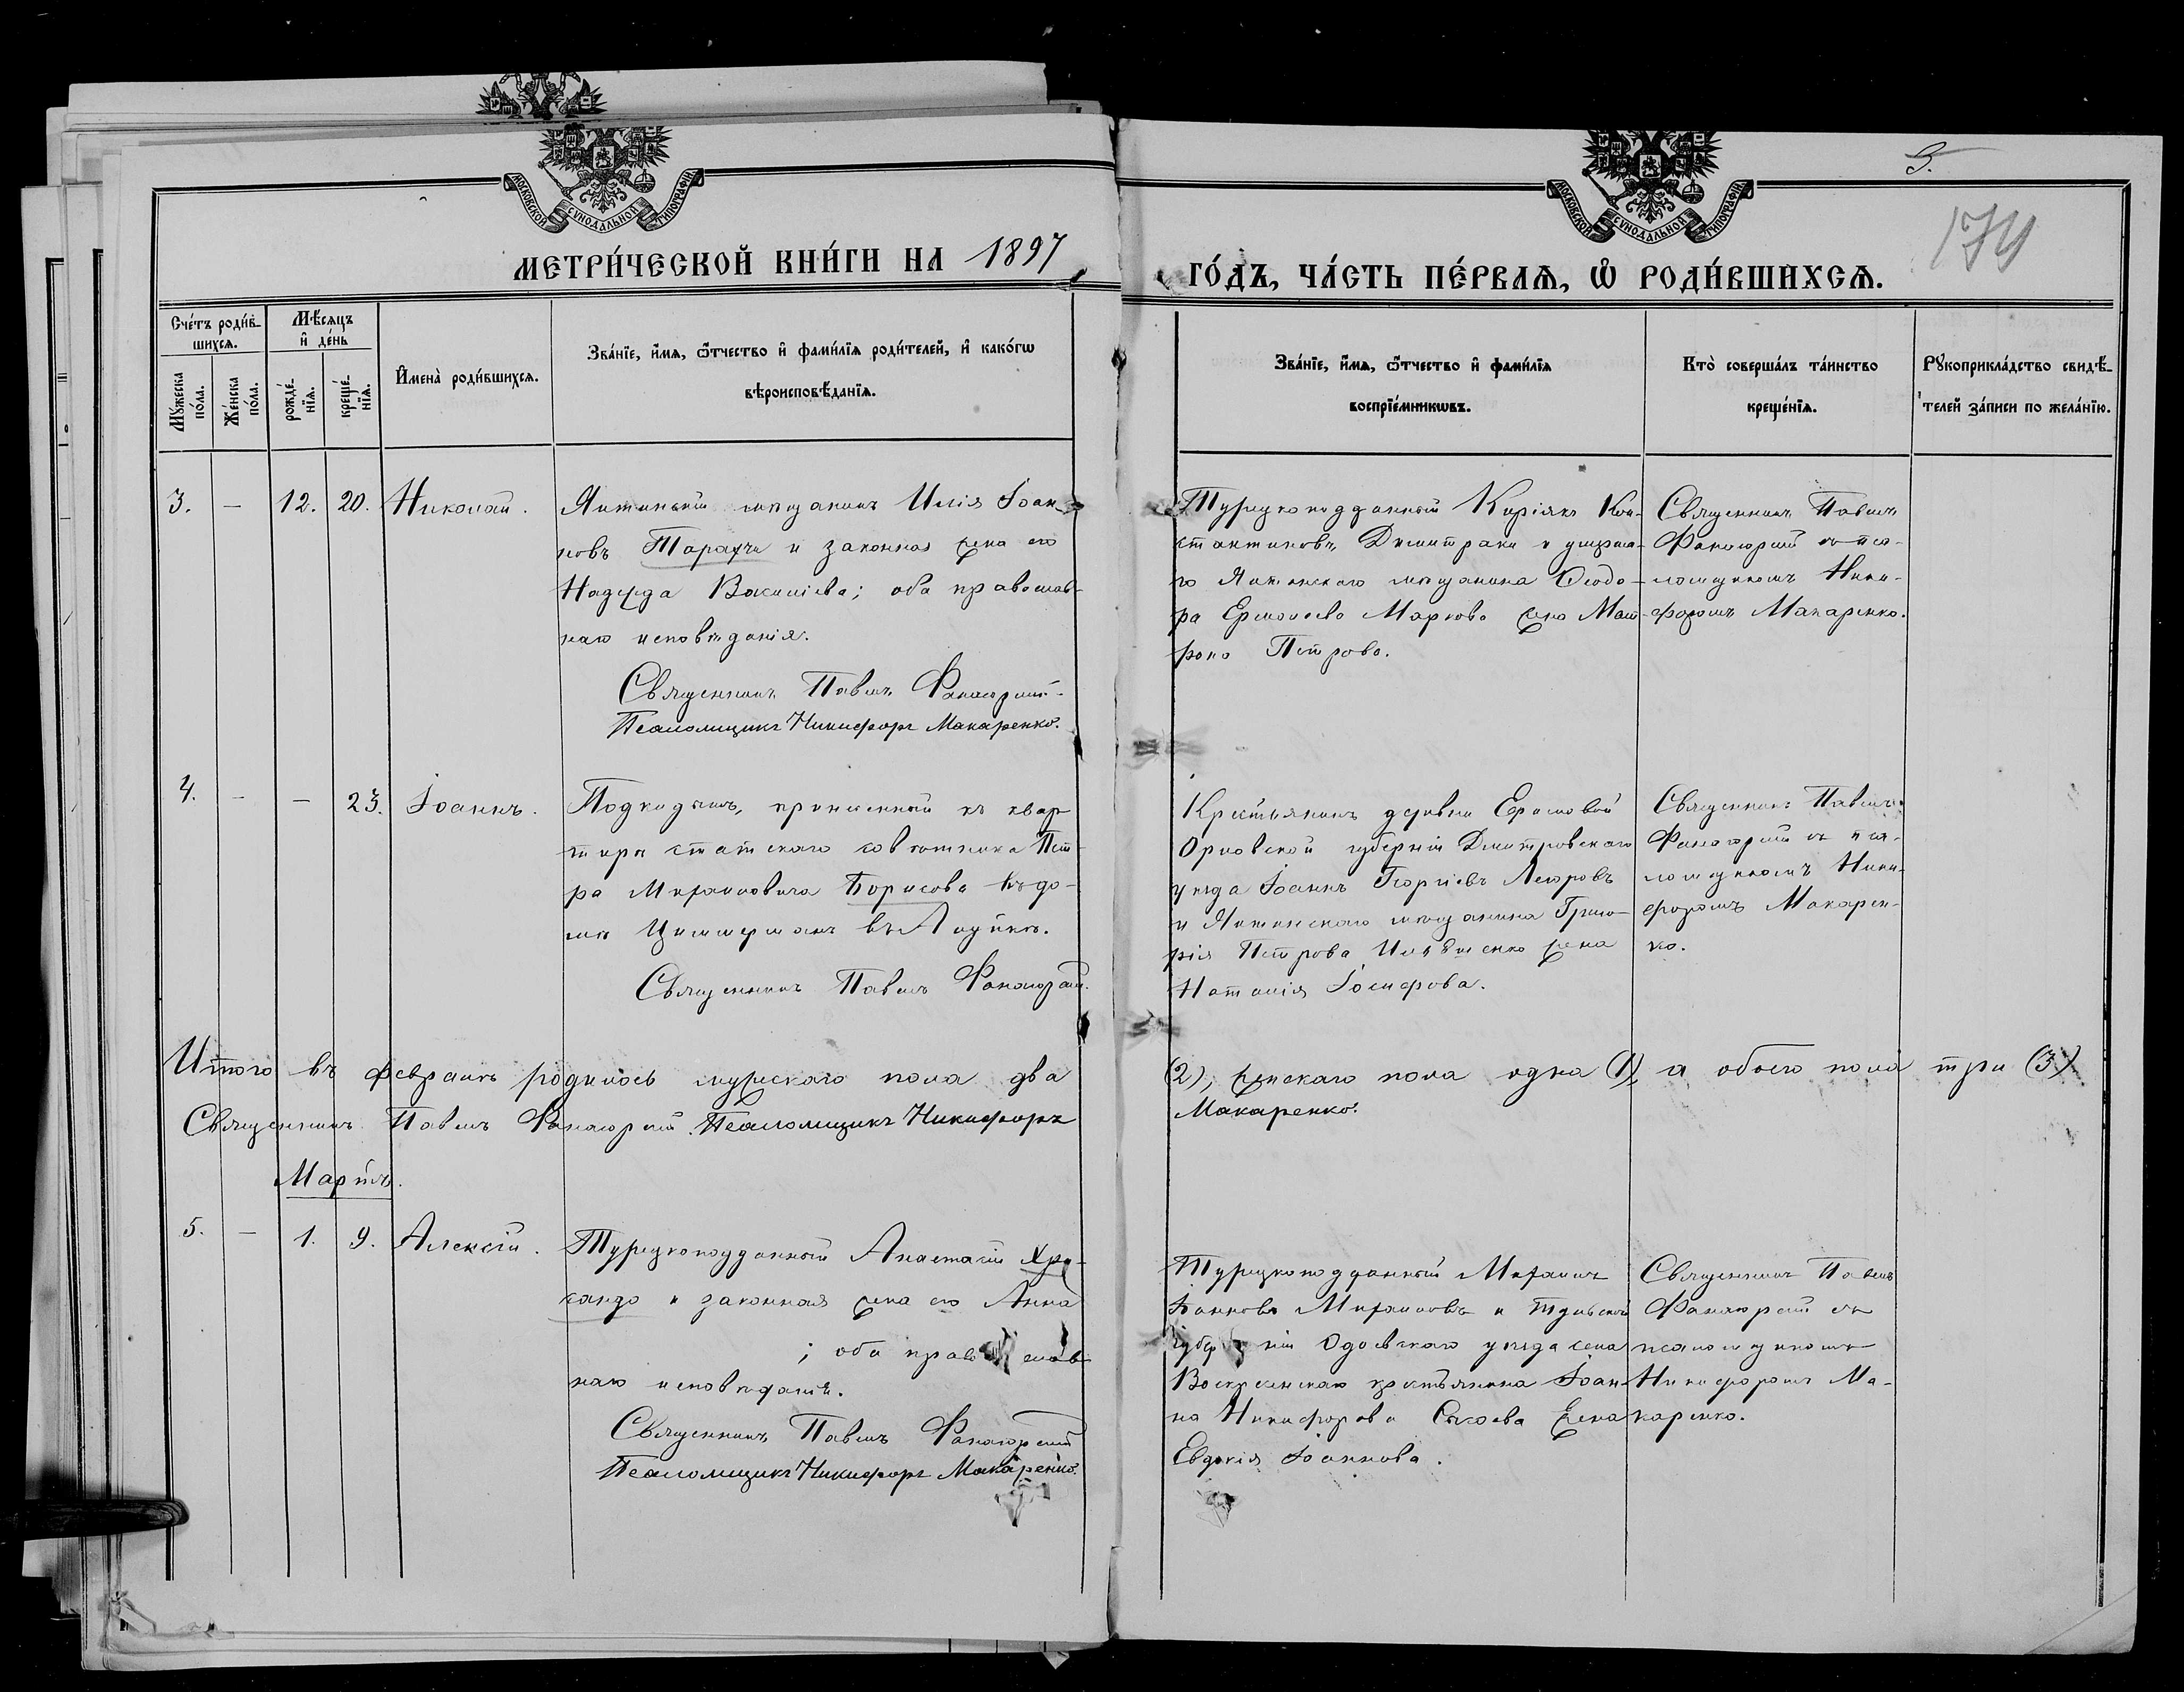 МОСКОВСКОЙ СѴНОДАЛЬНОЙ ТИПОГРАФІИ
МОСКОВСКОЙ СѴНОДАЛЬНОЙ ТИПОГРАФІИ
5.
174
МЕТРИ́ЧЕСКОЙ КНИ́ГИ НА 1897
ГО́ДЪ, ЧА́СТЬ ПЕ́РВАѦ, Ѡ҆ РОДИ́ВШИХСѦ.
Сче́тъ роди́в-
шихсѧ.
Мꙋ́жеска
по́ла.
Же́нска
по́ла.
Мѣ́сѧцъ
и҆ де́нь
рожде́-
нїѧ.
креще́-
нїѧ.
И҆мена̀ роди́вшихсѧ.
Зва́нїе, и҆́мѧ, ѻ҆́тчество и҆ фами́лїѧ роди́телей, и҆ како́гѡ
вѣроисповѣ́данїѧ.
Зва́нїе, и҆́мѧ, ѻ҆́тчество и҆ фами́лїѧ
воспрїе́мникѡвъ.
Кто̀ соверша́лъ та́инство
креще́нїѧ.
Рꙋкоприкла́дство свидѣ́-
телей за́писи по жела́нїю.
3. — 12. 20. Николай.
Ялтинскій мѣщанинъ Илія Іоан-
новъ Тарахчи и законная жена его
Надежда Василіева; оба православ-
наго исповѣданія.
Священникъ Павелъ
Псаломщикъ Никифоръ Макаренко.
Турецкоподданный Киріякъ Кон-
стантиновъ Димитраки и умерша-
го Ялтинскаго мѣщанина Ѳеодо-
ра Ермолаева Маркова жена Мат-
рона Петрова.
Священникъ Павелъ
съ пса-
ломщикомъ Ники-
форомъ Макаренко.
4. — — 23. Іоаннъ.
Подкидышъ, принесенный къ квар
тирѣ статскаго совѣтника Пет-
ра Михаиловича Борисова въ до-
мѣ Циммерманъ въ Алупкѣ.
Священникъ Павелъ
Крестьянинъ деревни
Орловской губерніи Дмитровскаго
уѣзда Іоаннъ Георгіевъ
и Ялтинскаго мѣщанина Григо-
рія Петрова жена
Наталія Іосифова.
Священникъ Павелъ
съ пса-
ломщикомъ Ники-
форомъ Макарен-
ко.
Итого въ февралѣ родилось мужескаго пола два
(2), женскаго пола одна (1), а обоего пола три (3)
Священникъ Павелъ Псаломщикъ Никифоръ
Макаренко.
Мартъ.
5. — 1. 9. Алексій.
Турецкоподданный Анастасій Хри-
сандо и законная жена его Анна
; оба православ
наго исповѣданія.
Священникъ Павелъ
Псаломщикъ Никифоръ Макаренко.
Турецкоподданный Михаилъ
Іоанновъ Михаиловъ и Тульской
губерніи Одоевскаго уѣзда села
Воскресенскаго крестьянина Іоан-
на Никифорова жена
Евдокія Іоаннова.
Священникъ Павелъ
съ
псаломщикомъ
Никифоромъ Ма-
каренко.